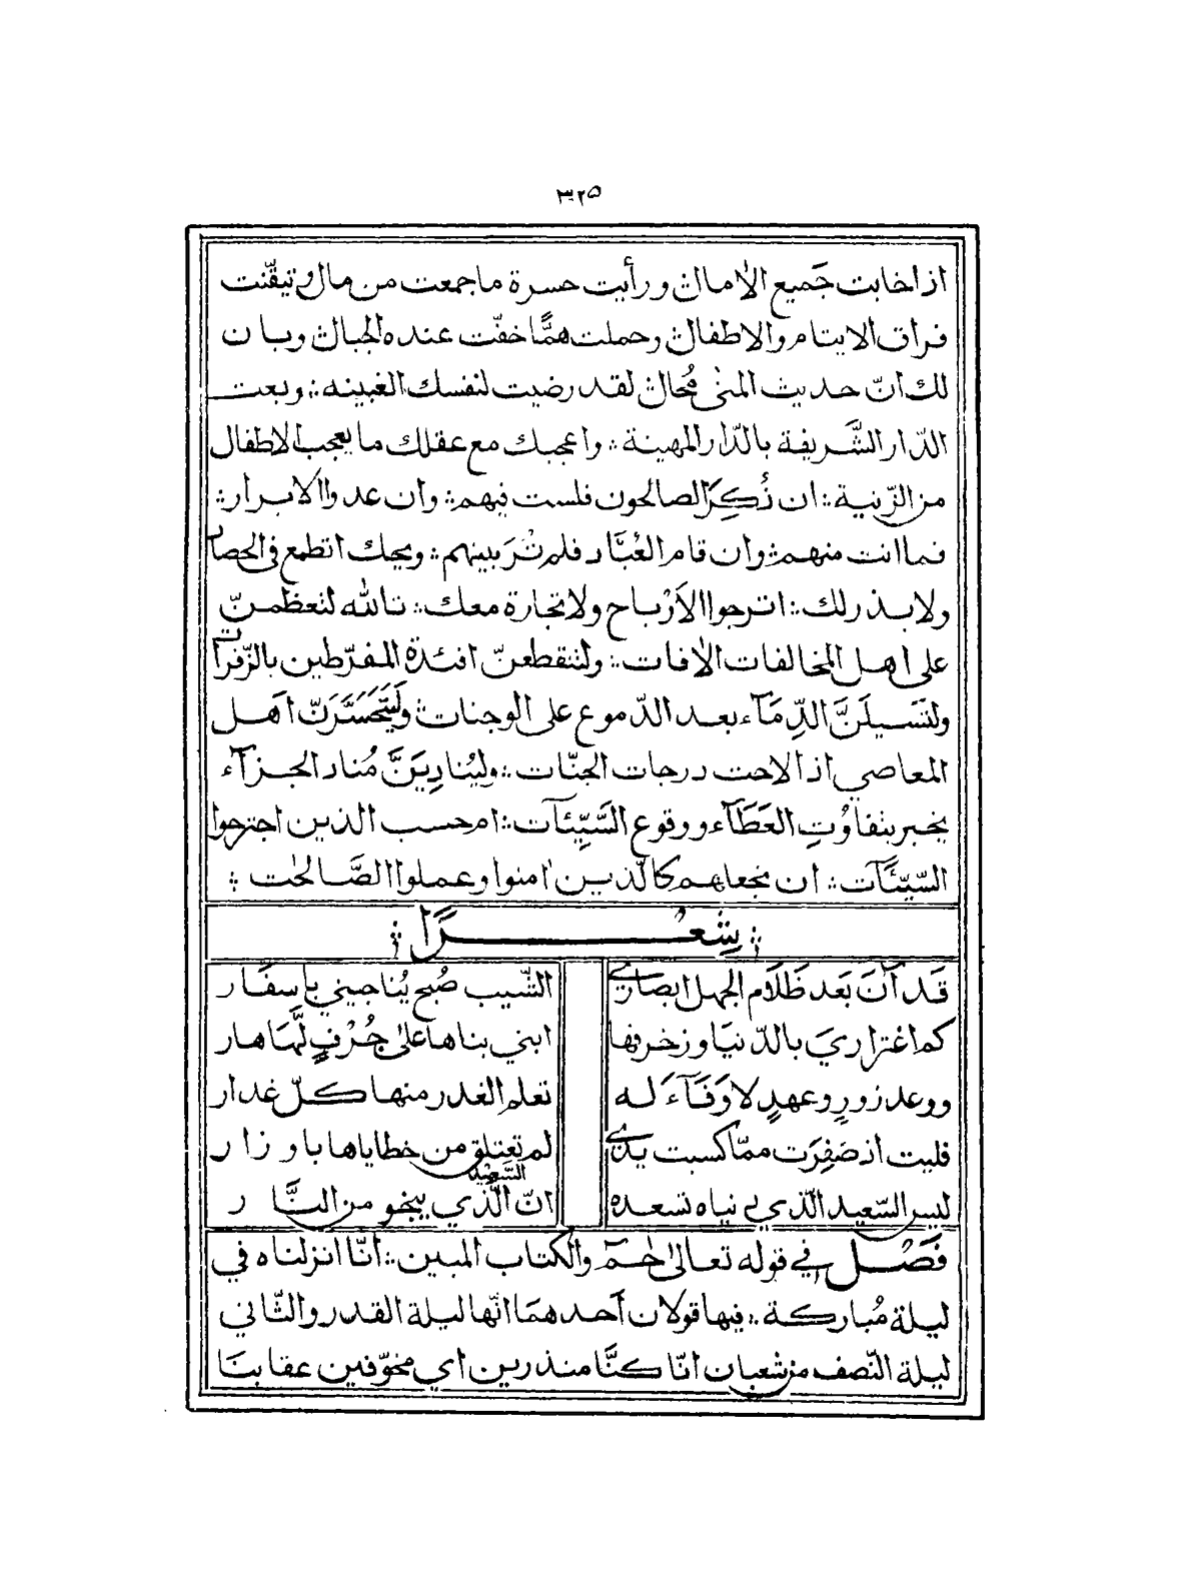 ٣٢٥
اذا خابت جَميع الاٰمال ؞ ورأيت حسرة ما جمعت من مال ؞ وتيقّنت
فراق الايتام والاطفال ؞ وحملت همًّا خفّت عنده الجبال ؞ وبان
لك انّ حديث المنٰى مُحال ؞ لقد رضيت لنفسك الغبينه ؞ وبعت
الدّار الشَّريفة بالدّار المهينة ؞ واعجبك مع عقلك ما يعجب الاطفال
من الزّينية ؞ ان ذُكِرَ الصالحون فلست فيهم ؞ وان عدوا الابرار ؞
فما انت منهم ؞ وان قام العُبَّاد فلم تُرَ بينهم ؞ ويحك اتطمع في الحصاد
ولا بذر لك ؞ اترجوا الاَرْباح ولا تجارة معك ؞ تالله لتعظمنّ
على اهل المخالفات الاٰفات ؞ ولتنقطعنّ افئدة المفرّطين بالزّفرات
ولتَسيلَنَّ الدِّمَآء بعد الدّموع على الوجنات ؞ وَلَيَتَحَسَّرَنّ اَهل
المعاصي اذا لاحت درجات الجنّات ؞ وليُنادِيَنَّ مُناد الجزآء
يخبر بتفاوُتِ العَطَآء ووقوع السَّيِّئآت ؞ ام حسب الذين اجترحوا
السّيّئَآت ؞ ان نجعلهم كالّذين اٰمنوا وعملوا الصَّالحٰت ؞
؞ شِعْرًا ؞
قَد آنَ بَعد ظَلَام الجهل ابصاري الشّيب صُبح يُناجيني بإسفَار
كم اغتراريَ بالدّنيَا وزخرفها ابني بناها على جُرُفٍ لَّهَا هار
ووعد زورٍ وعهدٍ لا وَفَآءَ لَه تعلم الغدر منها كلّ غدار
فليت اذ صَفِرَت ممّا كسبت يدي لم تعتلق من خطاياها باوزار
ليس السّعيد الّذي دنياه تسعده انّ السّعيد الَّذي ينجو من النَّار
فَصْل في قوله تعالىٰ حٰمٓ والكتاب المبين ؞ انّا انزلناه في
ليلة مُباركة ؞ فيها قولان اَحدهمَا انّها ليلة القدر والثّاني
ليلة النّصف من شعبان انّا كنَّا منذرين اي مخوّفين عقابنَا